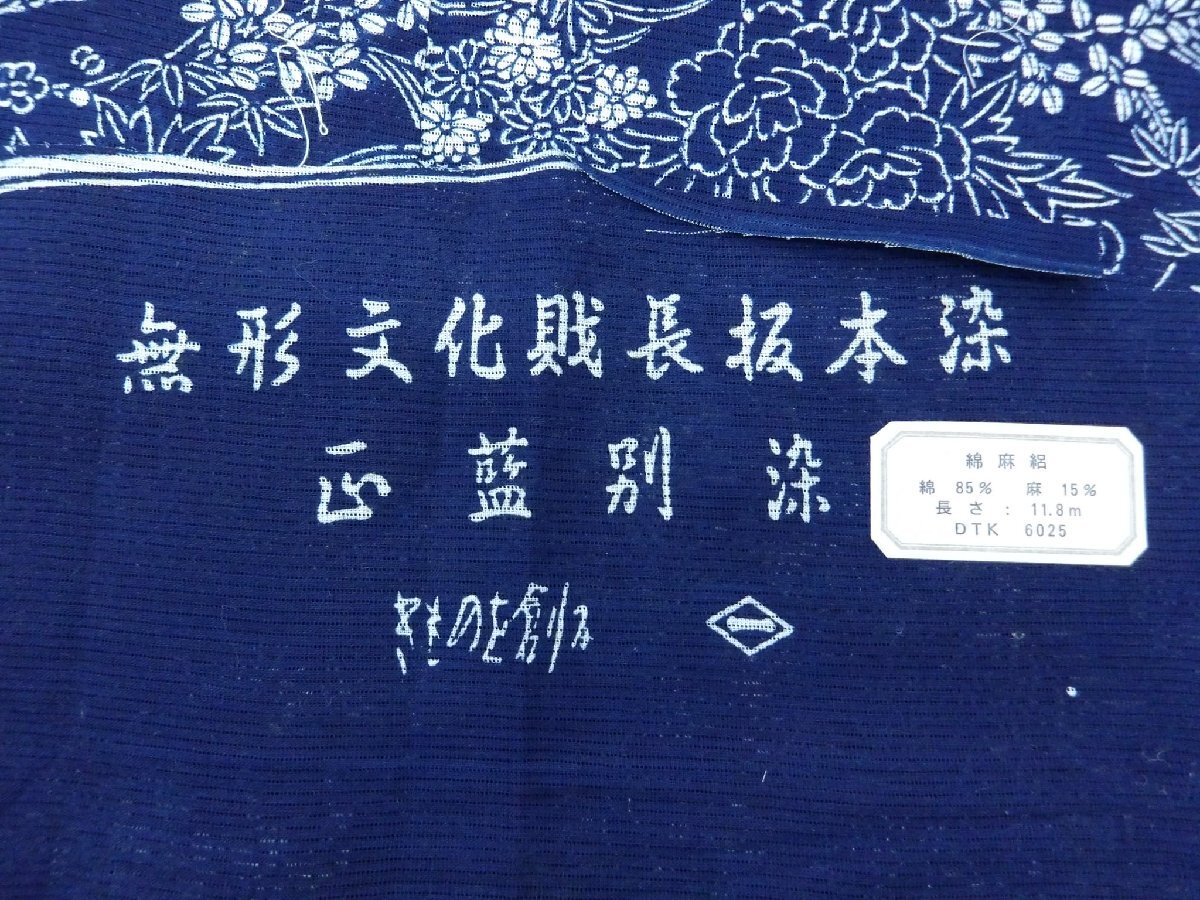 無形文化財長板本染
正藍別染
きものを創る
綿麻絽
綿 85% 麻 15%
長さ: 11.8m
DTK 6025